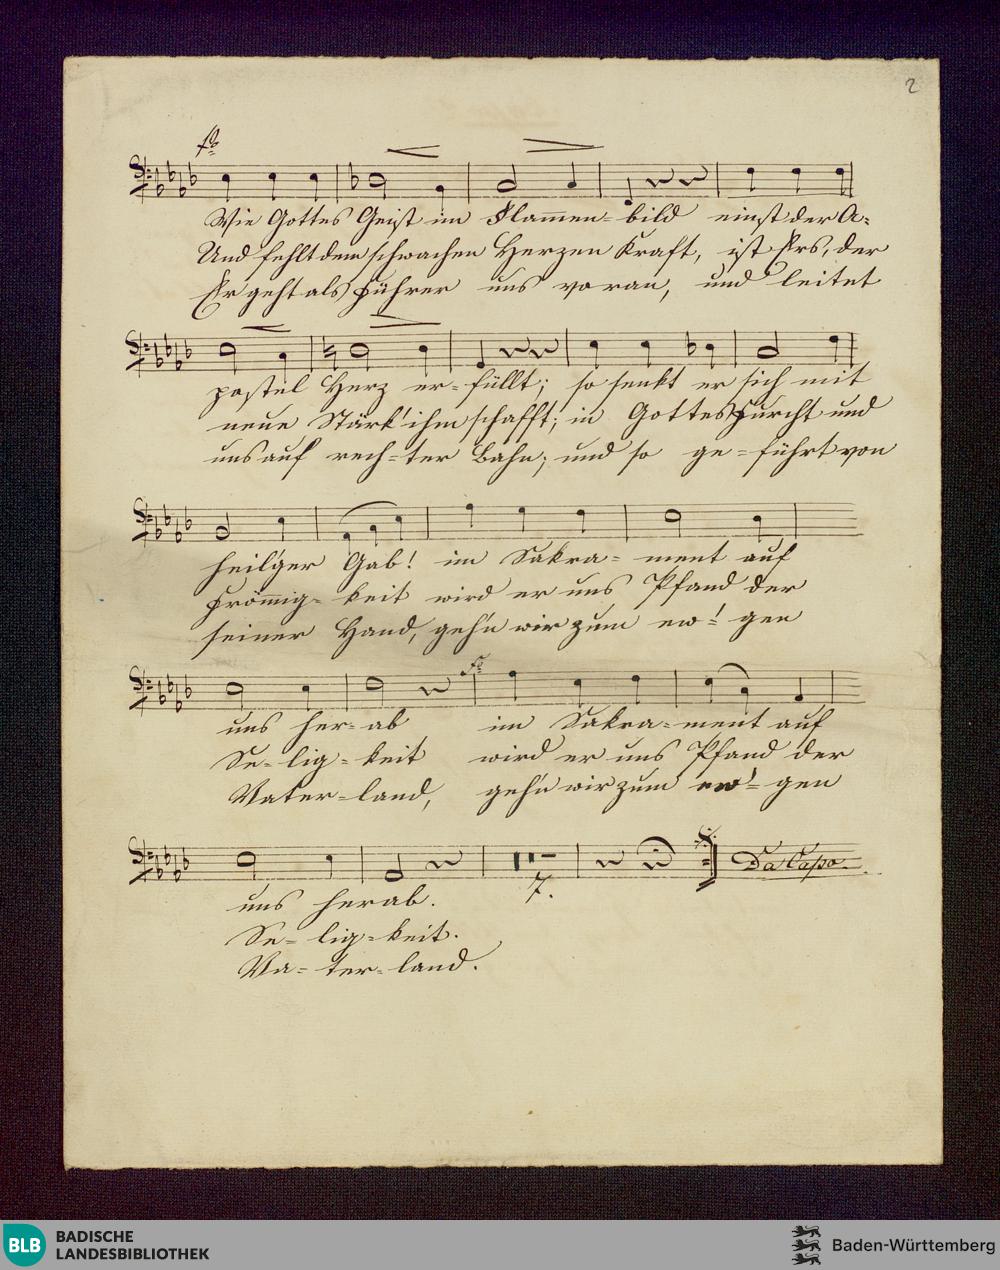 2
fo
Wie Gottes Geist im Flammen-bild einst der A-
Und fehlt dem schwachen Herzen Kraft, ist Er's, der
Er geht als Führer uns voran, und leitet
postel Herz er-füllt; so senkt er sich mit
neue Stärk' ihm schafft; in Gottes Furcht und
uns auf rech-ter Bahn; und so ge-führt von
heil'ger Gab! im Sakra-ment auf
Frömig-keit wird er uns Pfand der
seiner Hand, gehn wir zum ew'-gen
fo
uns her-ab im Sakra-ment auf
Se-lig-keit wird er uns Pfand der
Vater-land, geh'n wir zum ew'-gen
7.
Da Capo.
uns herab.
Se-lig-keit.
Va-ter-land.
BLB BADISCHE
LANDESBIBLIOTHEK
Baden-Württemberg